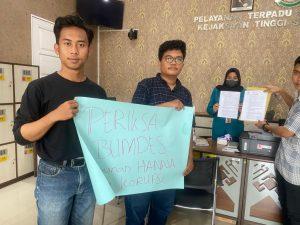 PELAYANAN TERPADU
KEJAKSAAN TINGGI
PERIKSA
BUMDES
HANNA
KORUPSI